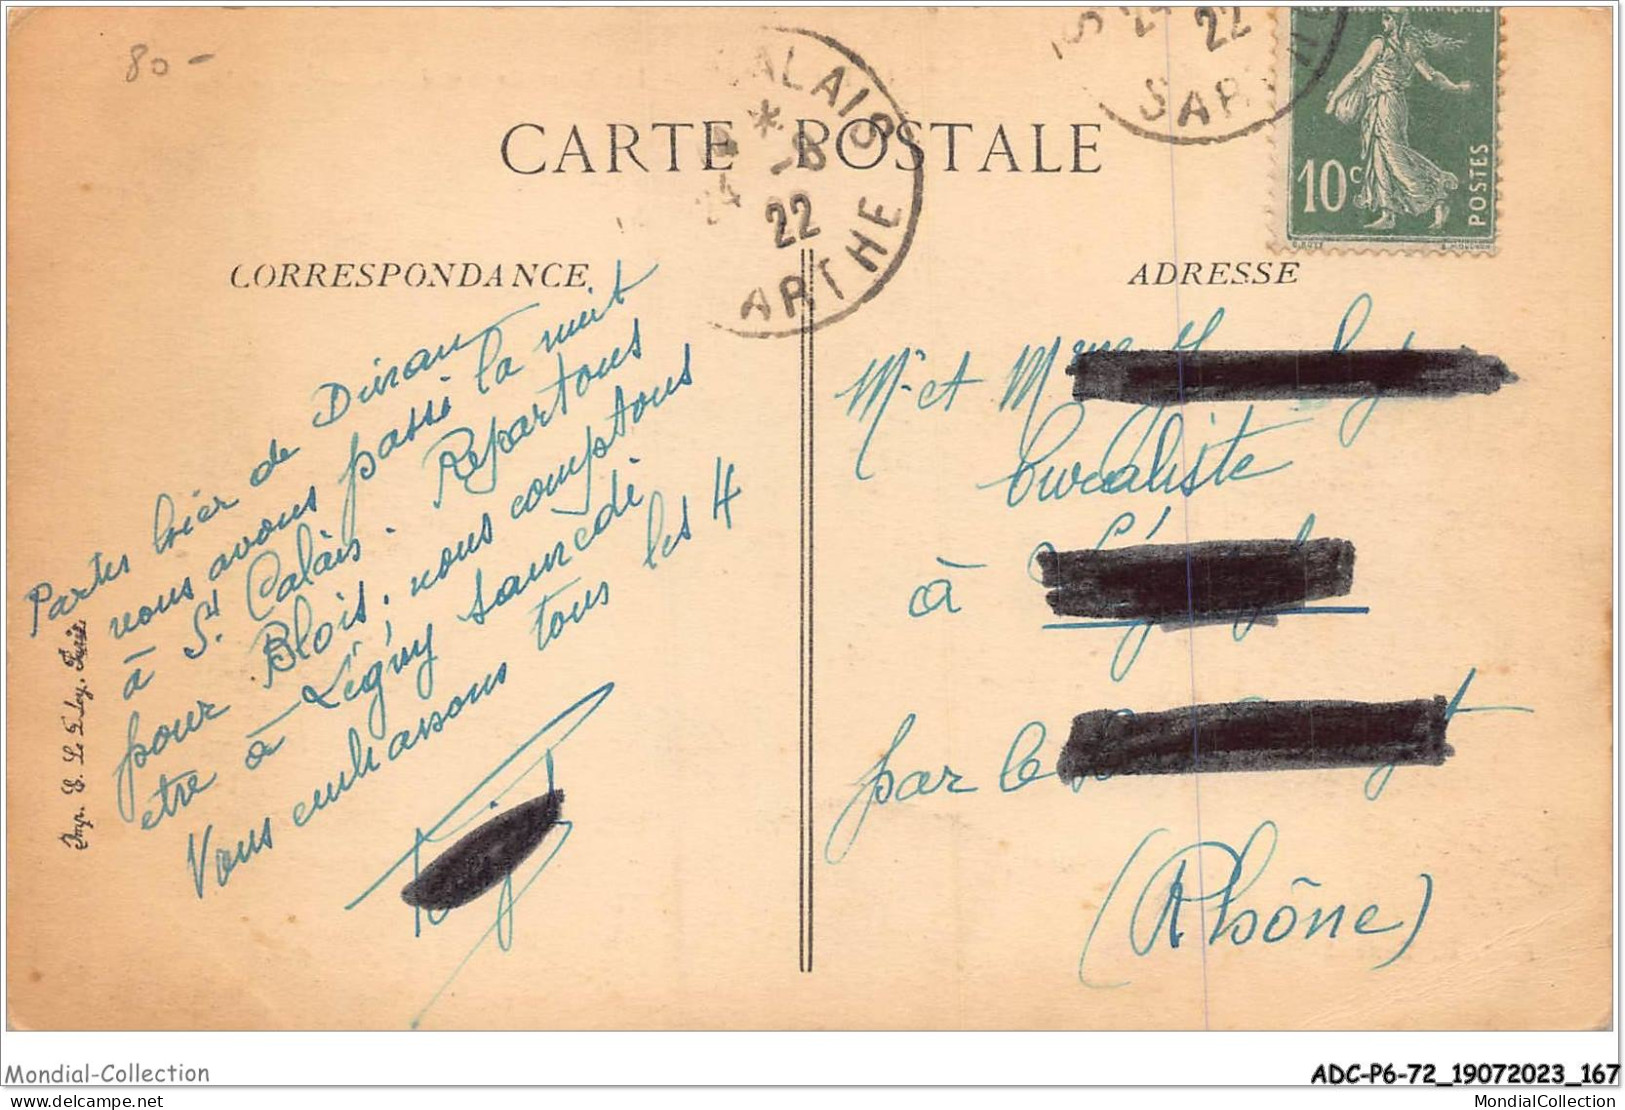 80-
CARTE POSTALE
CALAIS
* 24 -8
22
SARTHE
24
22
SARTHE
10c
POSTES
CORRESPONDANCE
ADRESSE
Partis hier de Dinan
nous avons passé la nuit
à St Calais. Repartons
pour Blois, nous comptons
etre à Légny samedi
Vous embrassons tous les 4
Mr et Mme
buraliste
à
par le
(Rhône)
Imp. E. Le Deley, Paris
Mondial-Collection
ADC-P6-72_19072023_167
delcampe.net
MondialCollection